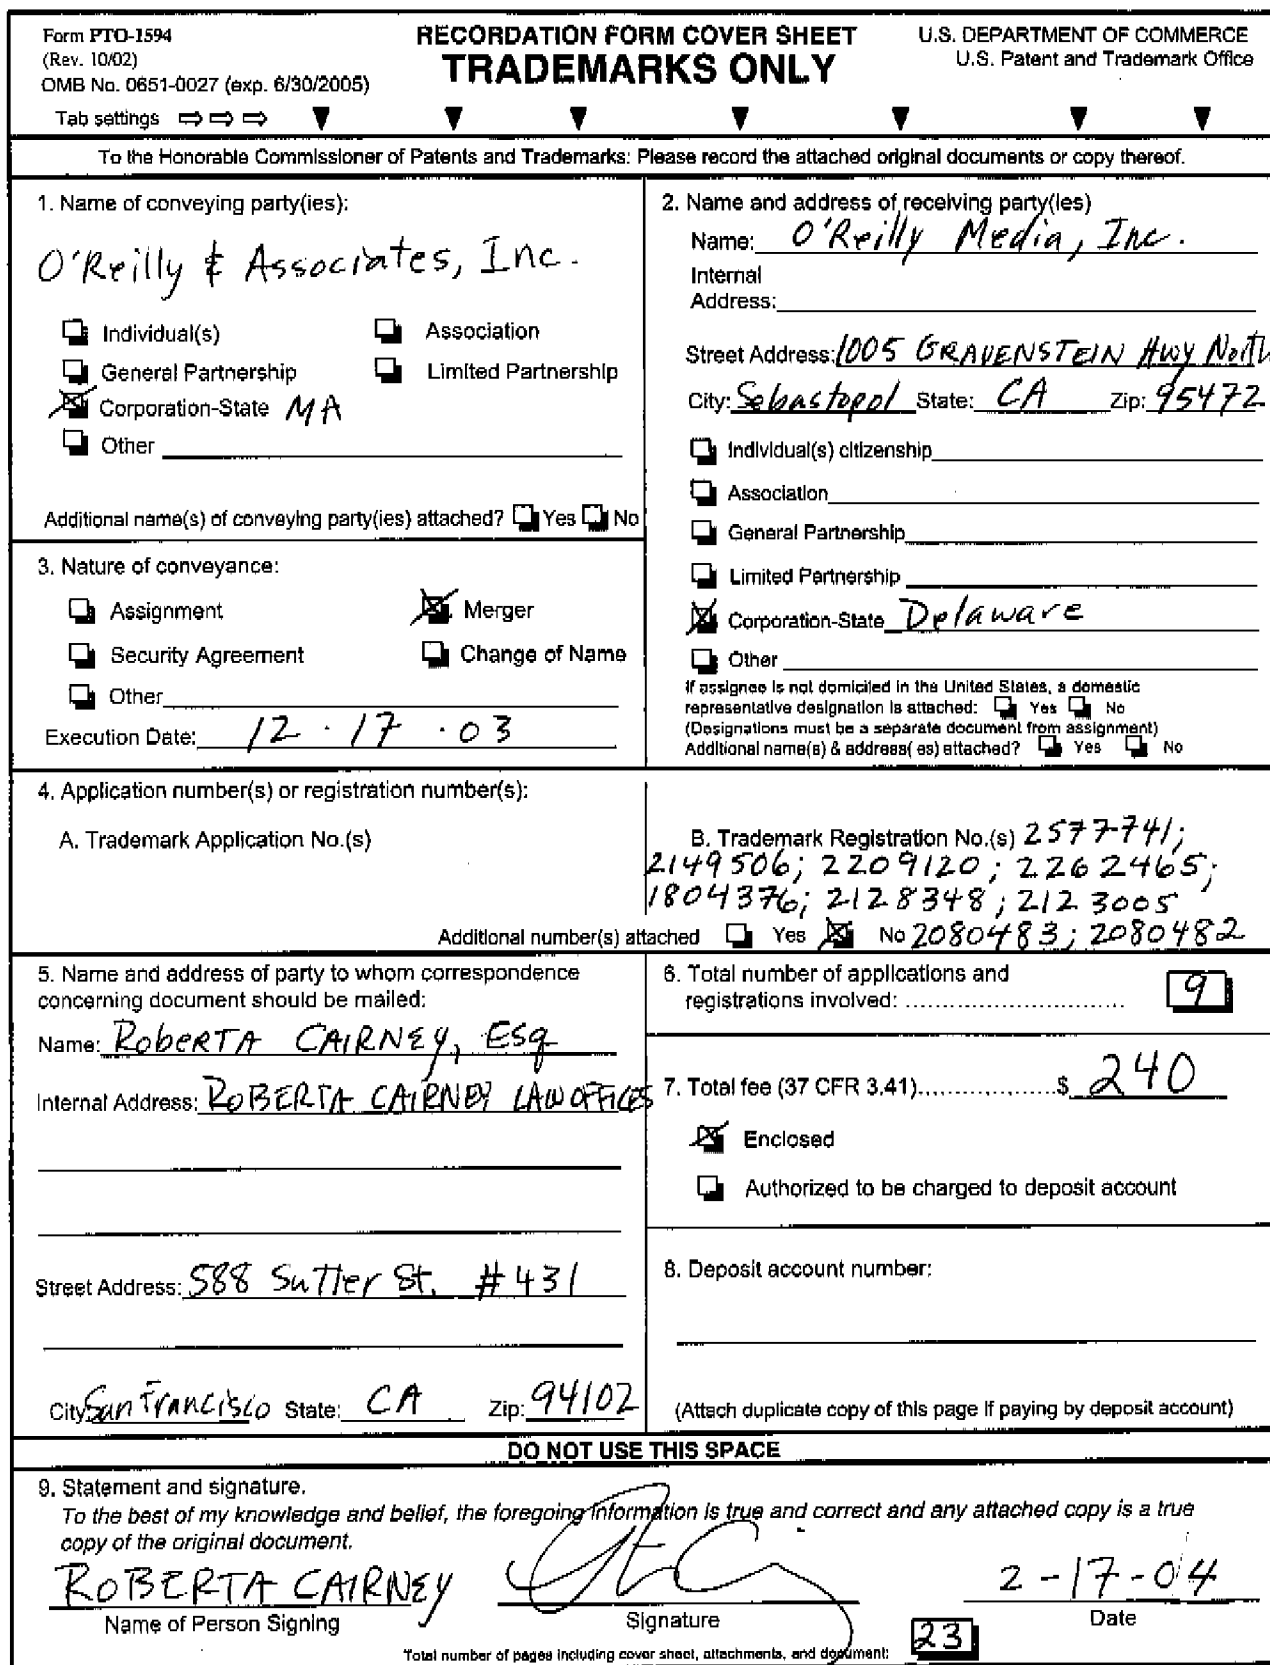 Form PTO-1594
(Rev. 10/02)
OMB No. 0651-0027 (exp. 6/30/2005)
RECORDATION FORM COVER SHEET
TRADEMARKS ONLY
U.S. DEPARTMENT OF COMMERCE
U.S. Patent and Trademark Office
Tab settings ⇨ ⇨ ⇨ ▼ ▼ ▼ ▼ ▼ ▼ ▼
To the Honorable Commissioner of Patents and Trademarks: Please record the attached original documents or copy thereof.
1. Name of conveying party(ies):
O'Reilly & Associates, Inc.
Individual(s) Association
General Partnership Limited Partnership
Corporation-State MA
Other
Additional name(s) of conveying party(ies) attached? Yes No
2. Name and address of receiving party(ies)
Name: O'Reilly Media, Inc.
Internal
Address:
Street Address: 1005 GRAVENSTEIN Hwy North
City: Sebastopol State: CA Zip: 95472
Individual(s) citizenship
Association
General Partnership
Limited Partnership
Corporation-State Delaware
Other
If assignee is not domiciled in the United States, a domestic
representative designation is attached: Yes No
(Designations must be a separate document from assignment)
Additional name(s) & address( es) attached? Yes No
3. Nature of conveyance:
Assignment Merger
Security Agreement Change of Name
Other
Execution Date: 12 . 17 . 03
4. Application number(s) or registration number(s):
A. Trademark Application No.(s)
B. Trademark Registration No.(s) 2577741;
2149506; 2209120; 2262465;
1804376; 2128348; 2123005
Additional number(s) attached Yes No 2080483; 2080482
5. Name and address of party to whom correspondence
concerning document should be mailed:
Name: RobERTA CAIRNEY, ESq
Internal Address: ROBERTA CAIRNEY LAW OFFICES
Street Address: 588 Sutter St. #431
City: San Francisco State: CA Zip: 94102
6. Total number of applications and
registrations involved: ............................ 9
7. Total fee (37 CFR 3.41)....................$ 240
Enclosed
Authorized to be charged to deposit account
8. Deposit account number:
(Attach duplicate copy of this page if paying by deposit account)
DO NOT USE THIS SPACE
9. Statement and signature.
To the best of my knowledge and belief, the foregoing information is true and correct and any attached copy is a true
copy of the original document.
ROBERTA CAIRNEY 2-17-04
Name of Person Signing Signature Date
Total number of pages including cover sheet, attachments, and document: 23